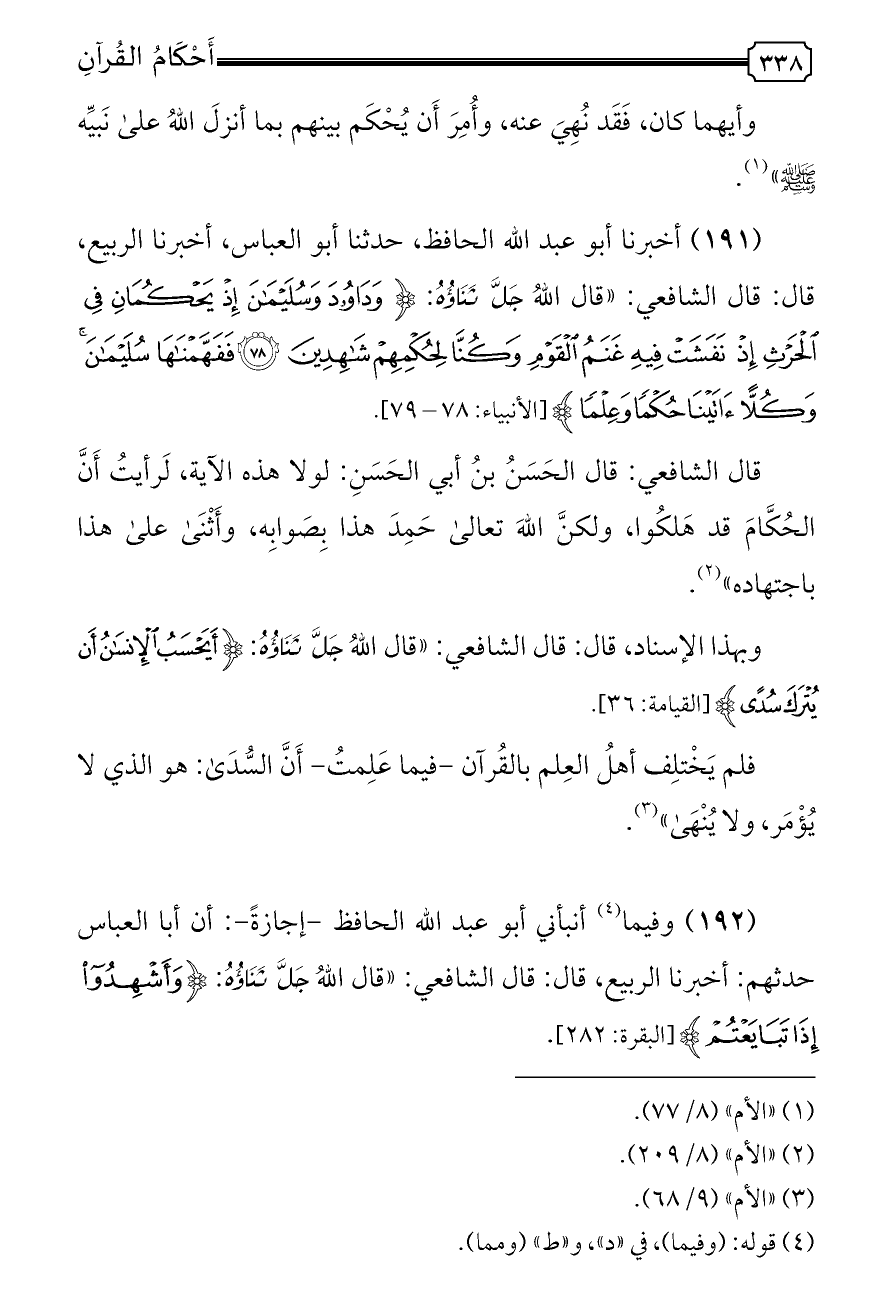 ٣٣٨ أَحْكَامُ القُرآنِ
وأيهما كان، فَقَد نُهِيَ عنه، وأُمِرَ أَن يُحْكَم بينهم بما أنزلَ اللهُ علىٰ نَبيِّه
ﷺ»(١).
(١٩١) أخبرنا أبو عبد الله الحافظ، حدثنا أبو العباس، أخبرنا الربيع،
قال: قال الشافعي: «قال اللهُ جَلَّ ثَنَاؤُهُ: ﴿وَدَاوُۥدَ وَسُلَيۡمَٰنَ إِذۡ يَحۡكُمَانِ فِي
ٱلۡحَرۡثِ إِذۡ نَفَشَتۡ فِيهِ غَنَمُ ٱلۡقَوۡمِ وَكُنَّا لِحُكۡمِهِمۡ شَٰهِدِينَ ٧٨ فَفَهَّمۡنَٰهَا سُلَيۡمَٰنَۚ
وَكُلًّا ءَاتَيۡنَا حُكۡمٗا وَعِلۡمٗا﴾ [الأنبياء: ٧٨ – ٧٩].
قال الشافعي: قال الحَسَنُ بنُ أبي الحَسَنِ: لولا هذه الآية، لَرأيتُ أَنَّ
الحُكَّامَ قد هَلكُوا، ولكنَّ اللهَ تعالىٰ حَمِدَ هذا بِصَوابِه، وأَثْنَىٰ علىٰ هذا
باجتهاده»(٢).
وبهذا الإسناد، قال: قال الشافعي: «قال اللهُ جَلَّ ثَنَاؤُهُ: ﴿أَيَحۡسَبُ ٱلۡإِنسَٰنُ أَن
يُتۡرَكَ سُدًى﴾ [القيامة: ٣٦].
فلم يَخْتلِف أهلُ العِلم بالقُرآن –فيما عَلِمتُ– أَنَّ السُّدَىٰ: هو الذي لا
يُؤْمَر، ولا يُنْهَىٰ»(٣).
(١٩٢) وفيما(٤) أنبأني أبو عبد الله الحافظ –إجازةً–: أن أبا العباس
حدثهم: أخبرنا الربيع، قال: قال الشافعي: «قال اللهُ جَلَّ ثَنَاؤُهُ: ﴿وَأَشۡهِدُوٓاْ
إِذَا تَبَايَعۡتُمۡ﴾ [البقرة: ٢٨٢].
(١) «الأم» (٨/ ٧٧).
(٢) «الأم» (٨/ ٢٠٩).
(٣) «الأم» (٩/ ٦٨).
(٤) قوله: (وفيما)، في «د»، و«ط» (ومما).